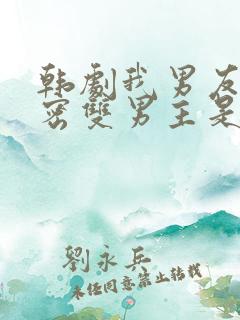 韩劇我男友
密雙男主是
劉永兵
未经同意禁止转载